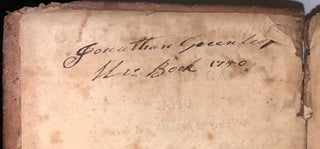 Jonathan Greenleaf
His Book 1750